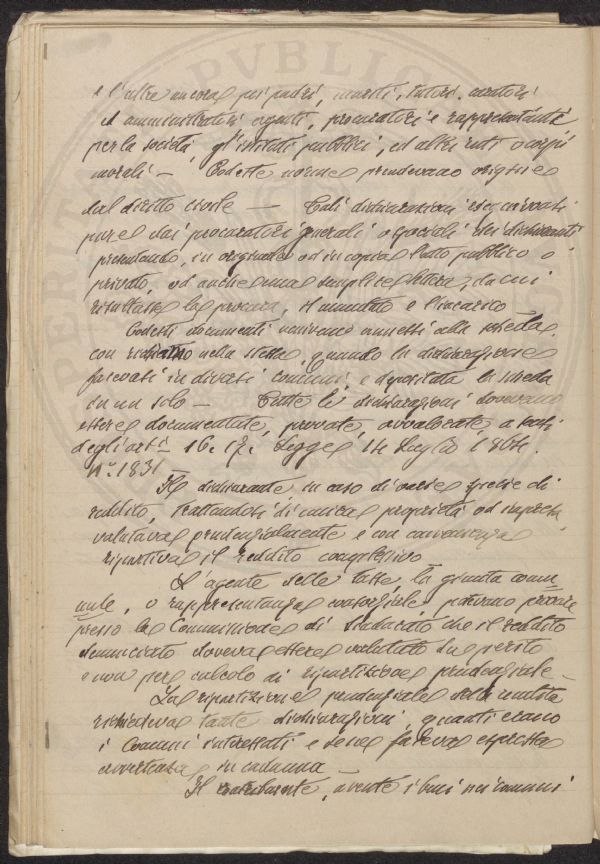 e l'altre ancora pei padri, mariti, tutori, curatori
ed amministratori agenti, procuratori e rappresentanti
per le società, gl'istituti pubblici, ed altri enti o corpi
morali — Codeste norme prendevano origine
dal diritto civile — Tali dichiarazioni
pure dai procuratori generali o speciali dei dichiaranti
presentando, in originale od in copia l'atto pubblico o
privato, od anche una semplice lettera, da cui
risultasse la procura, il mandato e l'incarico
Codesti documenti venivano annessi alla scheda,
con richiamo nella stessa, quando la dichiarazione
facevasi in diversi comuni, e depositata la scheda
in un solo — Tutte le dichiarazioni dovevano
essere documentate, provate, avvalorate a sensi
degli arti 16. 17. Legge 14 Luglio 1864.
N.° 1831
Il dichiarante in caso di varie specie di
reddito, trattandosi di unica proprietà od impresa
valutava prudenzialmente e con
ripartiva il reddito complessivo
L'agente delle tasse, la giunta comu-
nale, o rappresentanza consorziale, potevano provare
presso la Commissione di Sindacato che il reddito
denunciato doveva essere valutato da perito
e non per calcolo di ripartizione prudenziale —
La ripartizione prudenziale della
richiedeva tante dichiarazioni, quanti erano
i Comuni interessati e se ne faceva espressa
avvertenza in cadauna —
Il contribuente, avente i beni nei comuni